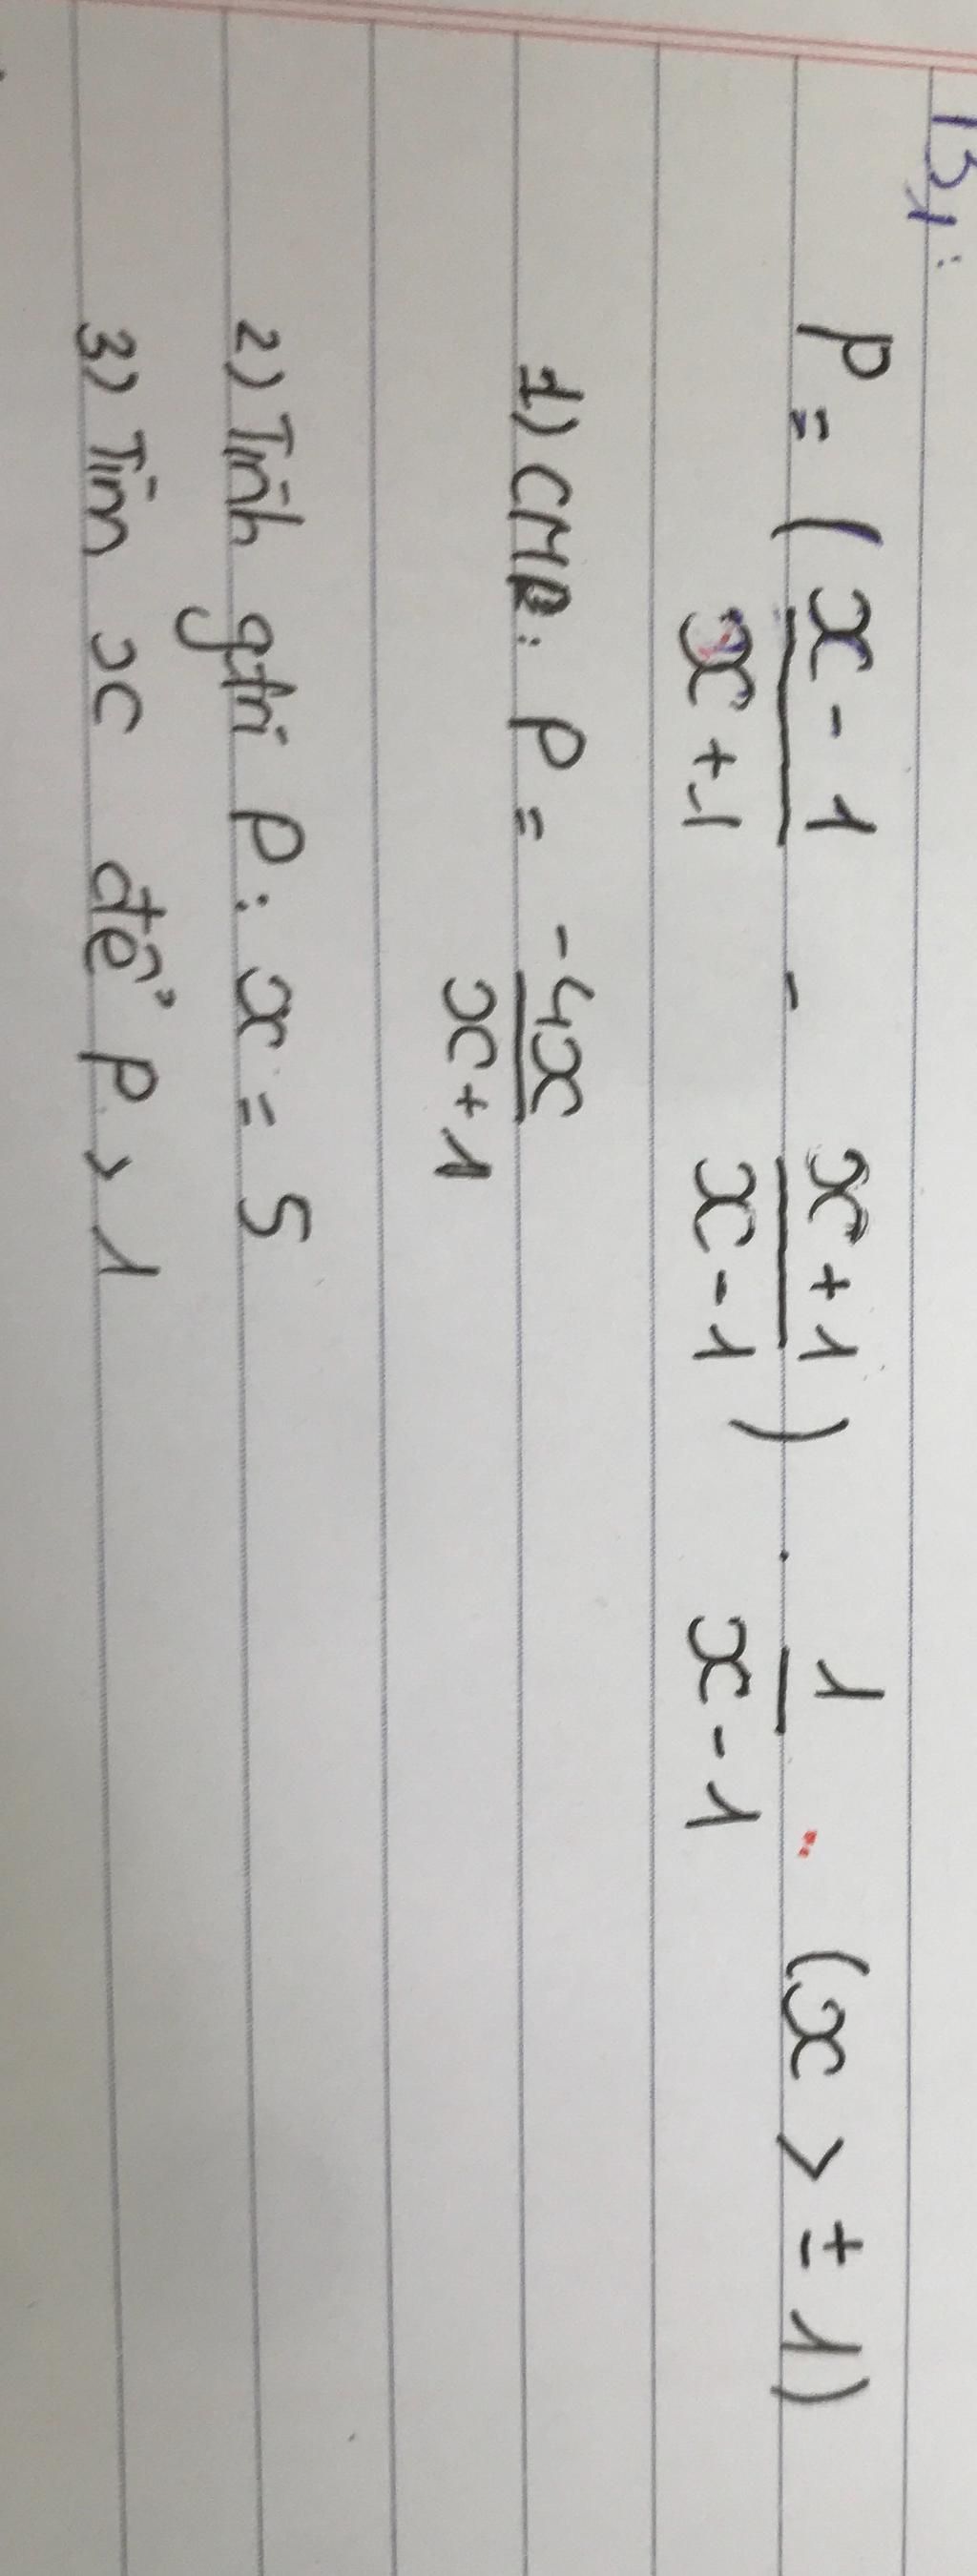 B1:
P = (x - 1 / x + 1 - x + 1 / x - 1) . 1 / x - 1 (x > ± 1)
1) CMR: P = -4x / x + 1
2) Tính gtri P: x = 5
3) Tìm x để P > 1